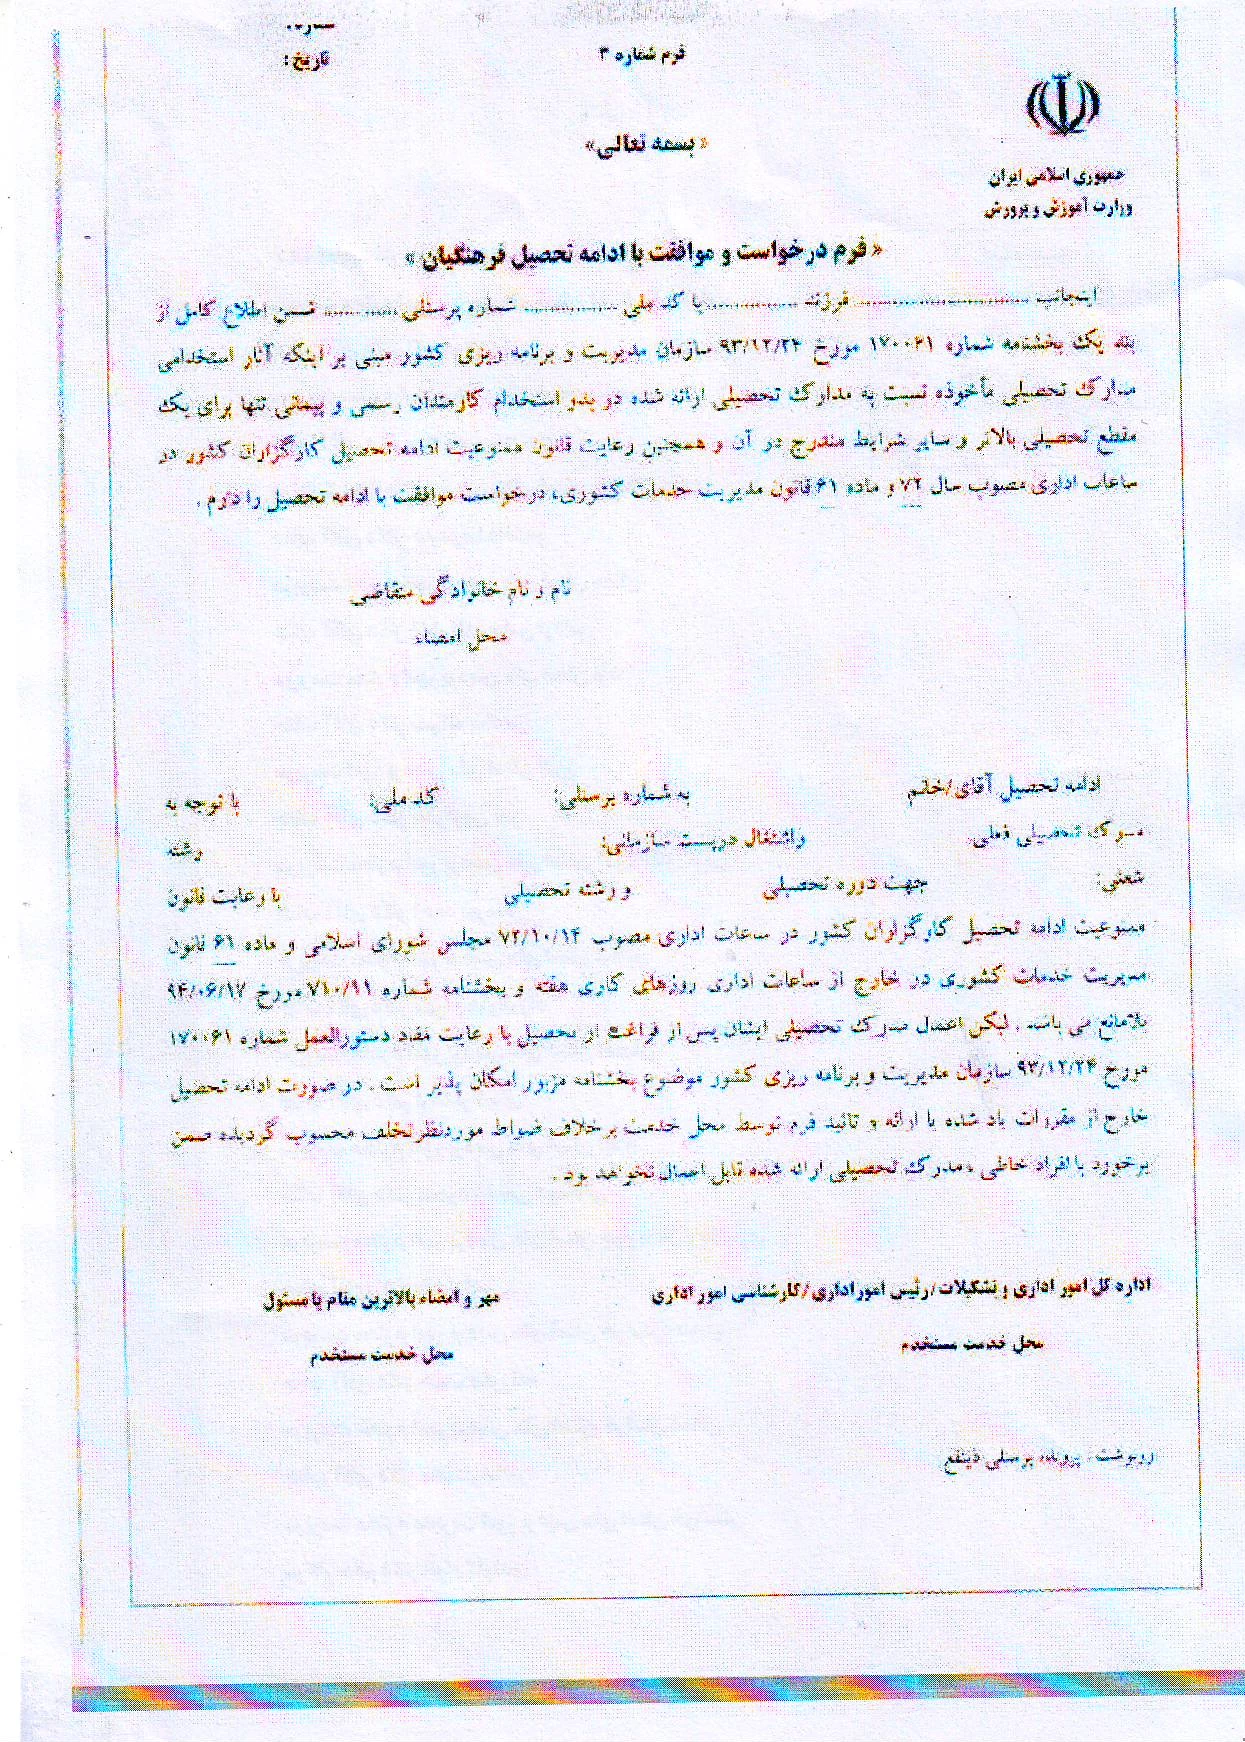 شماره:
تاریخ:
فرم شماره ۳
«بسمه تعالی»
جمهوری اسلامی ایران
وزارت آموزش و پرورش
« فرم درخواست و موافقت با ادامه تحصیل فرهنگیان »
اینجانب .................. فرزند .................. با کد ملی .................. شماره پرسنلی .............. ضمن اطلاع کامل از
بند یک بخشنامه شماره ۱۷۰۰۶۱ مورخ ۹۳/۱۲/۲۴ سازمان مدیریت و برنامه ریزی کشور مبنی بر اینکه آثار استخدامی
مدارک تحصیلی مأخوذه نسبت به مدارک تحصیلی ارائه شده در بدو استخدام کارمندان رسمی و پیمانی تنها برای یک
مقطع تحصیلی بالاتر و سایر شرایط مندرج در آن و همچنین رعایت قانون ممنوعیت ادامه تحصیل کارگزاران کشور در
ساعات اداری مصوب سال ۷۲ و ماده ۶۱ قانون مدیریت خدمات کشوری، درخواست موافقت با ادامه تحصیل را دارم .
نام و نام خانوادگی متقاضی
محل امضاء
ادامه تحصیل آقای/خانم به شماره پرسنلی: کد ملی: با توجه به
مدرک تحصیلی فعلی: و اشتغال در پست سازمانی: رشته
شغلی: جهت دوره تحصیلی و رشته تحصیلی با رعایت قانون
ممنوعیت ادامه تحصیل کارگزاران کشور در ساعات اداری مصوب ۷۲/۱۰/۱۴ مجلس شورای اسلامی و ماده ۶۱ قانون
مدیریت خدمات کشوری در خارج از ساعات اداری روزهای کاری هفته و بخشنامه شماره ۷۱۰/۹۱ مورخ ۹۴/۰۶/۱۷
بلامانع می باشد . لیکن اعمال مدرک تحصیلی ایشان پس از فراغت از تحصیل با رعایت مفاد دستورالعمل شماره ۱۷۰۰۶۱
مورخ ۹۳/۱۲/۲۴ سازمان مدیریت و برنامه ریزی کشور موضوع بخشنامه مزبور امکان پذیر است . در صورت ادامه تحصیل
خارج از مقررات یاد شده با ارائه و تائید فرم توسط محل خدمت برخلاف ضوابط موردنظر تخلف محسوب گردیده ضمن
برخورد با افراد خاطی ، مدرک تحصیلی ارائه شده قابل اعمال نخواهد بود .
اداره کل امور اداری و تشکیلات/رئیس امور اداری/کارشناسی امور اداری
محل خدمت مستخدم
مهر و امضاء بالاترین مقام یا مسئول
محل خدمت مستخدم
رونوشت: پرونده پرسنلی ذینفع